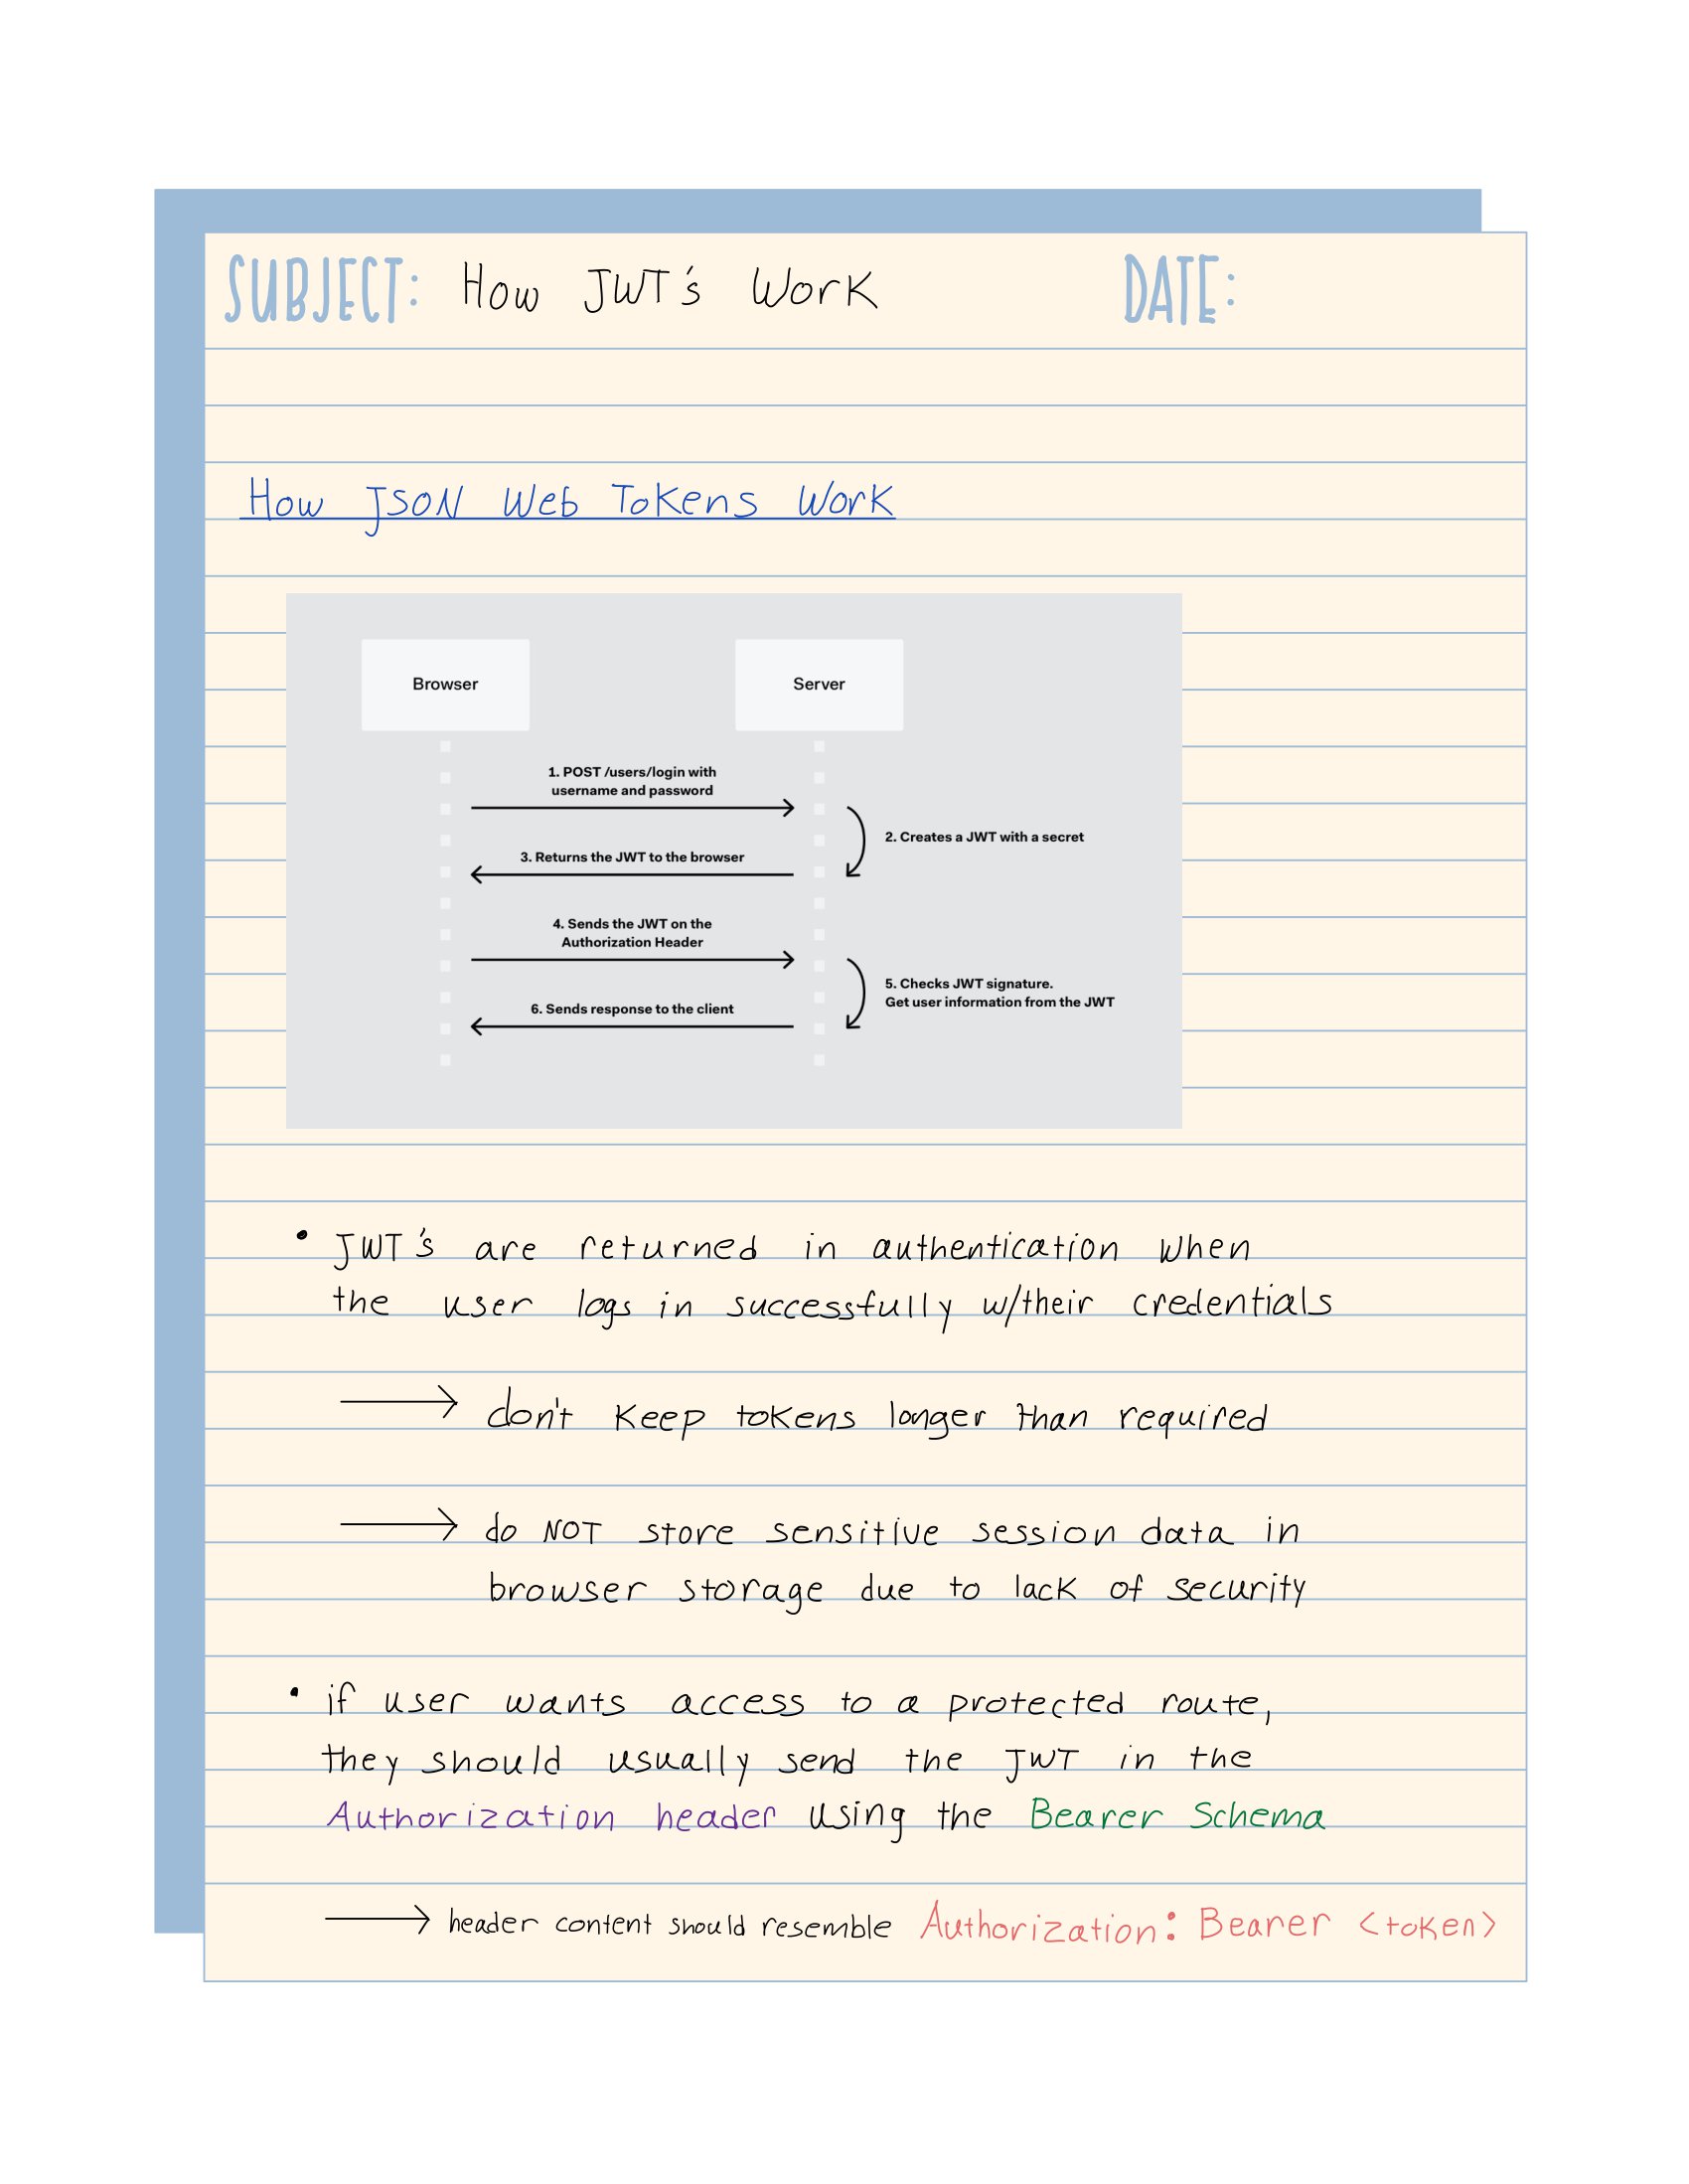 SUBJECT: How JWT's Work DATE:
How JSON Web Tokens Work
Browser Server
1. POST /users/login with
username and password
2. Creates a JWT with a secret
3. Returns the JWT to the browser
4. Sends the JWT on the
Authorization Header
5. Checks JWT signature.
Get user information from the JWT
6. Sends response to the client
• JWT's are returned in authentication when
the user logs in successfully w/their credentials
→ don't keep tokens longer than required
→ do NOT store sensitive session data in
browser storage due to lack of security
• if user wants access to a protected route,
they should usually send the JWT in the
Authorization header using the Bearer Schema
→ header content should resemble Authorization: Bearer <token>